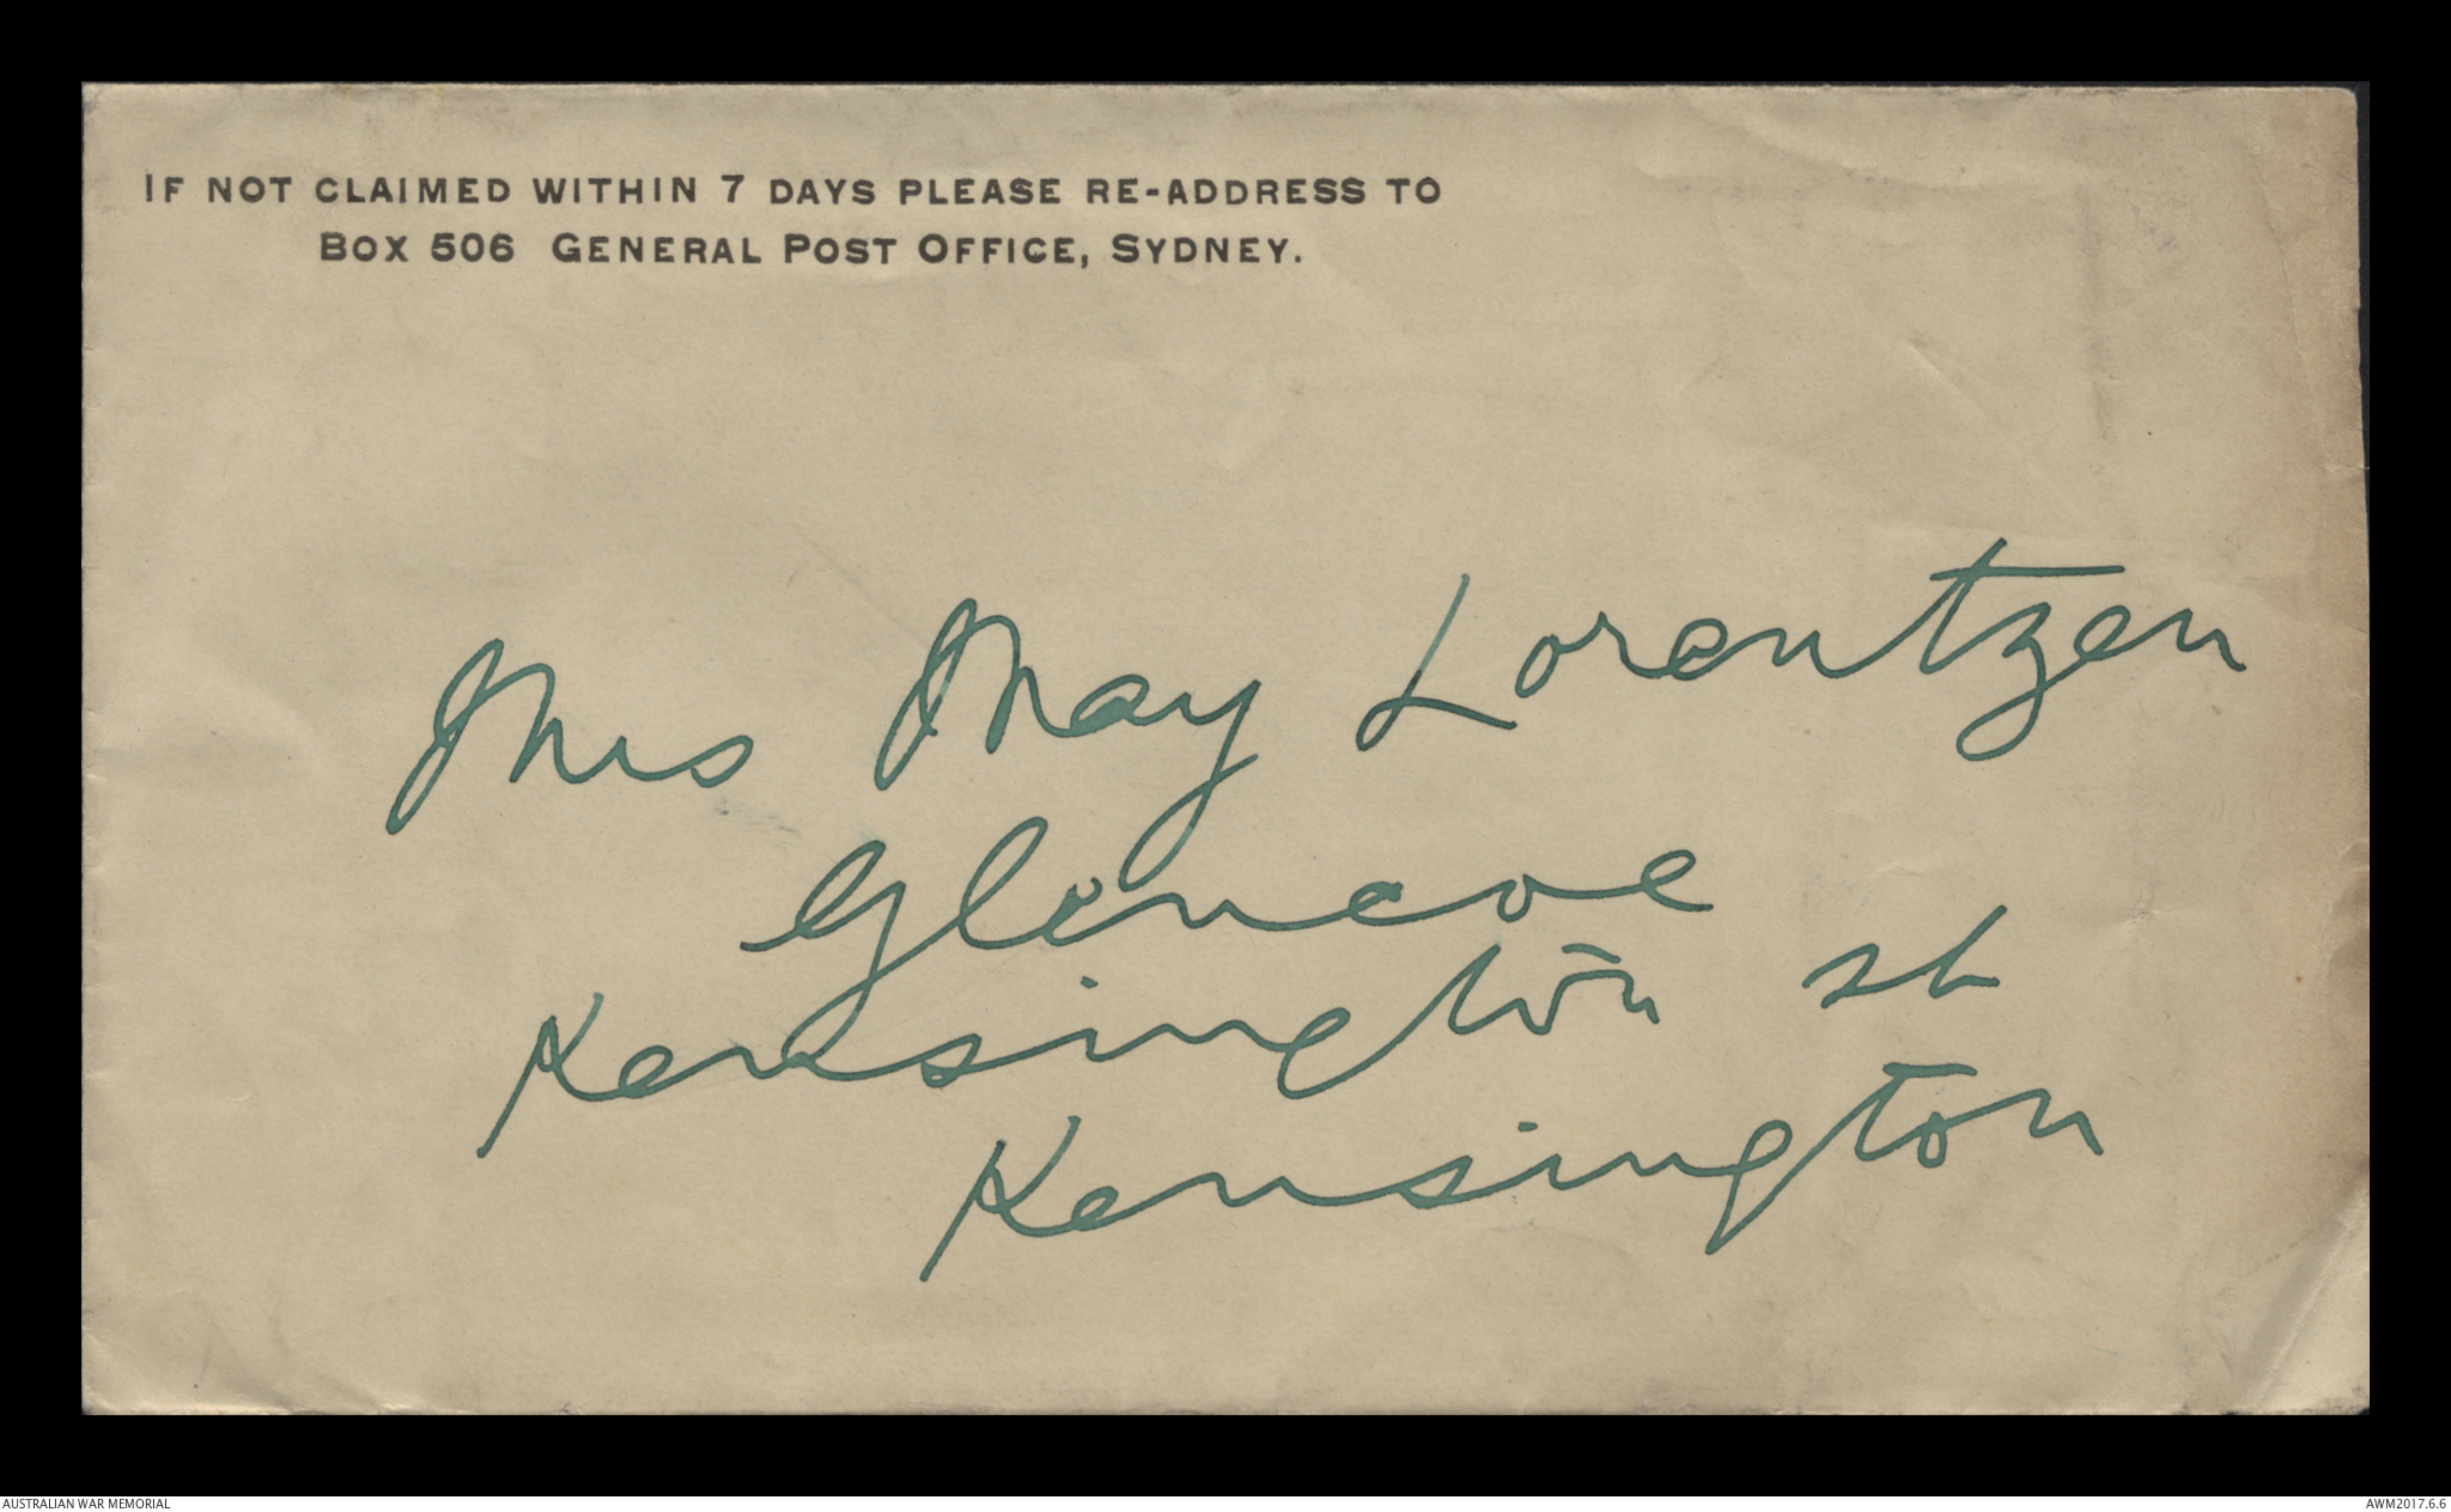 IF NOT CLAIMED WITHIN 7 DAYS PLEASE RE-ADDRESS TO
BOX 506 GENERAL POST OFFICE, SYDNEY.
Mrs May Lorentzen
Glencoe
Kensington st
Kensington
AUSTRALIAN WAR MEMORIAL
AWM2017.6.6